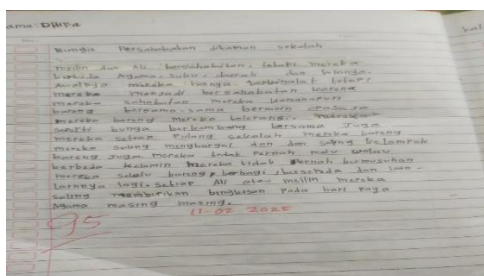 ama: Dififa
kal
Bunga Persahabatan ditaman sekolah
Meilin dan Ali, bersahabatan, tetapi mereka
berbeda Agama, suku, daerah dan budaya.
Awalnya mereka hanya tetapi
mereka menjadi bersahabatan karena
mereka sahabatan mereka
bareng bersama-sama bermain
mereka bareng mereka bertolrang. mereka
seperti bunga berkembang bersama Juga
mereka setiap Pulang sekolah mereka bareng
mereka saling menghargai dan dan saling kelompok
bareng Juga mereka tidak Pernah walau
berbeda kelamin mereka tidak Pernah bermusuhan
mereka selalu bareng, berbagi, bersepeda dan lain-
lainnya lagi. setiap Ali atau meilin mereka
saling memberikan bingkisan Pada hari raya
Agama masing masing.
11-02 2025
95